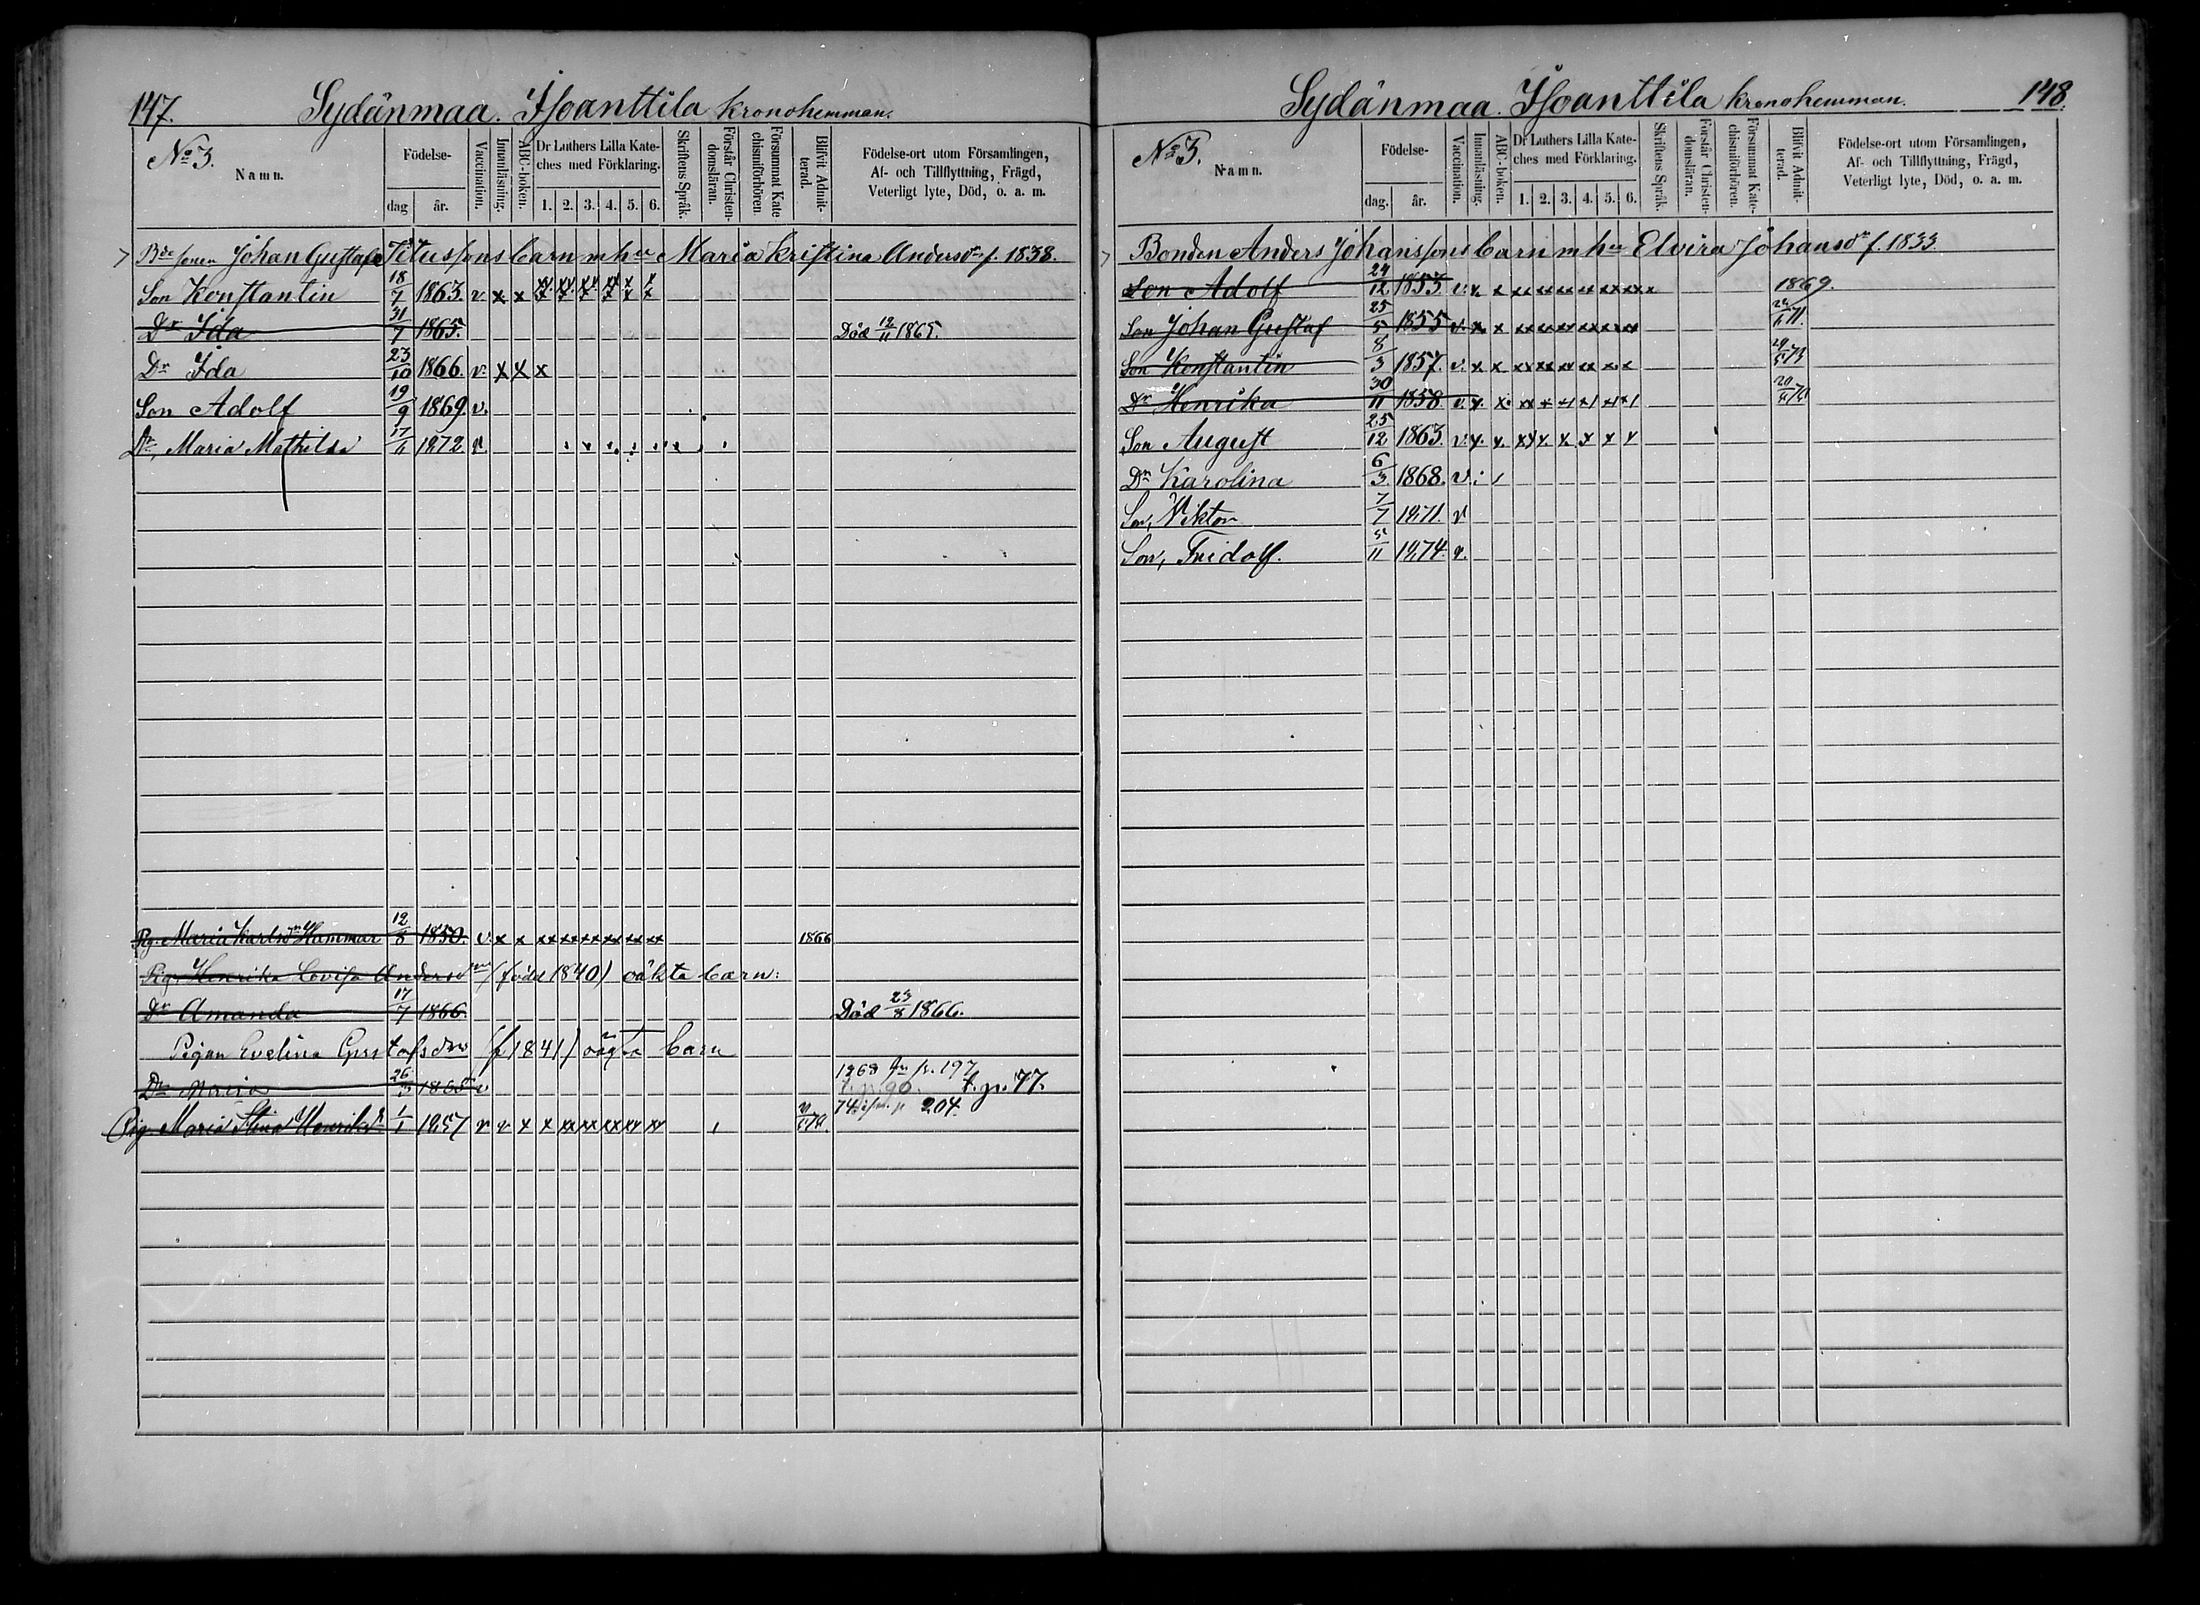 147.
Sydänmaa. Isoanttila kronohemman.
No 3.
Namn.
Födelse-
dag
år.
Vaccination.
Innanläsning.
ABC-boken.
Dr Luthers Lilla Kate-
ches med Förklaring.
1. 2. 3. 4. 5. 6.
Skriftens Språk.
Förstår Christen-
domsläran.
Försummat Kate
chismiförhören
Blifvit Admit-
terad.
Födelse-ort utom Församlingen,
Af- och Tillflyttning, Frägd,
Veterligt lyte, Död, o. a. m.
Bde sonen Johan Gustaf Titussons barn m hu Maria Kristina Andersdr f. 1838.
Son Konstantin 18/7 1863. v x x
Dr Ida 31/7 1865. Död 12/11 1865.
Dr Ida 23/10 1866. v. x x x
Son Adolf 19/9 1869 v.
Dr, Maria Mathilda 1872. v.
Pig. Maria Karlsdr Hammar 12/8 1850. v. x x xx xx xx xx xx xx 1866
Pig. Henrika Lovisa Andersdr (född 1840) oäkta barn:
Dr Amanda 17/7 1866. Död 23/8 1866.
Pigan Evelina Gustafsdr (f 1841) oägta barn
Dr Maria 1865 v 1868 fr p. 197
t. p. 90. t. p. 77.
Pig. Maria Stina Henriksdr 1/1 1857 v v x x xx xx xx xx xx 204.
148.
Sydänmaa. Isoanttila kronohemman.
No 3.
Namn.
Födelse-
dag.
år.
Vaccination.
Innanläsning.
ABC-boken.
Dr Luthers Lilla Kate-
ches med Förklaring.
1. 2. 3. 4. 5. 6.
Skriftens Språk.
Förstår Christen-
domsläran.
Försummat Kate-
chismiförhören.
Blifvit Admit-
terad.
Födelse-ort utom Församlingen,
Af- och Tillflyttning, Frägd,
Veterligt lyte, Död, o. a. m.
Bonden Anders Johanssons barn m hu Elvira Johansdr f. 1833.
Son Adolf 24/12 1853 v. x. x xx xx xx xx xx xx x 1869.
Son Johan Gustaf 25/5 1855 v. x. x xx xx xx xx xx xx
Son Konstantin 8/3 1857. v. x x xx xx xx xx xx x
Dr Henrika 30/11 1858. v. x. x.
Son August 25/12 1863. v. x. x. xx x. x x x x
Dr Karolina 6/3 1868. v.
Son, Viktor 7/7 1871. v
Son, Fridolf. 5/11 1874. v.